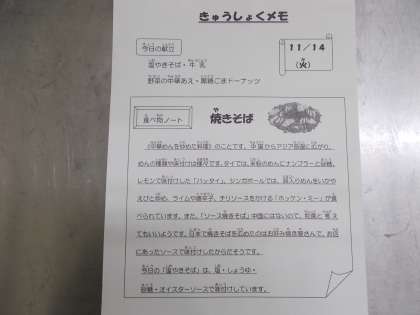 きゅうしょくメモ
今日の献立
11/14
(火)
塩やきそば・牛乳
野菜の中華あえ・黒糖ごまドーナッツ
食べ物ノート
焼きそば
《中華めんを炒めた料理》のことです。中国からアジア各国に広がり、
めんの種類や味付けは様々です。タイでは、米粉のめんにナンプラーと砂糖、
レモンで味付けした「パッタイ」、シンガポールでは、卵入りめんをいかや
えびと炒め、ライムや唐辛子、チリソースをかける「ホッケン・ミー」が食
べられています。また、「ソース焼きそば」中国にはないので、和風と考え
てもいいようです。日本で焼きそばを広めたのはお好み焼き屋さんで、お店
にあったソースで味付けしたからだそうです。
今日の「塩やきそば」は、塩・しょうゆ・
砂糖・オイスターソースで味付けしています。